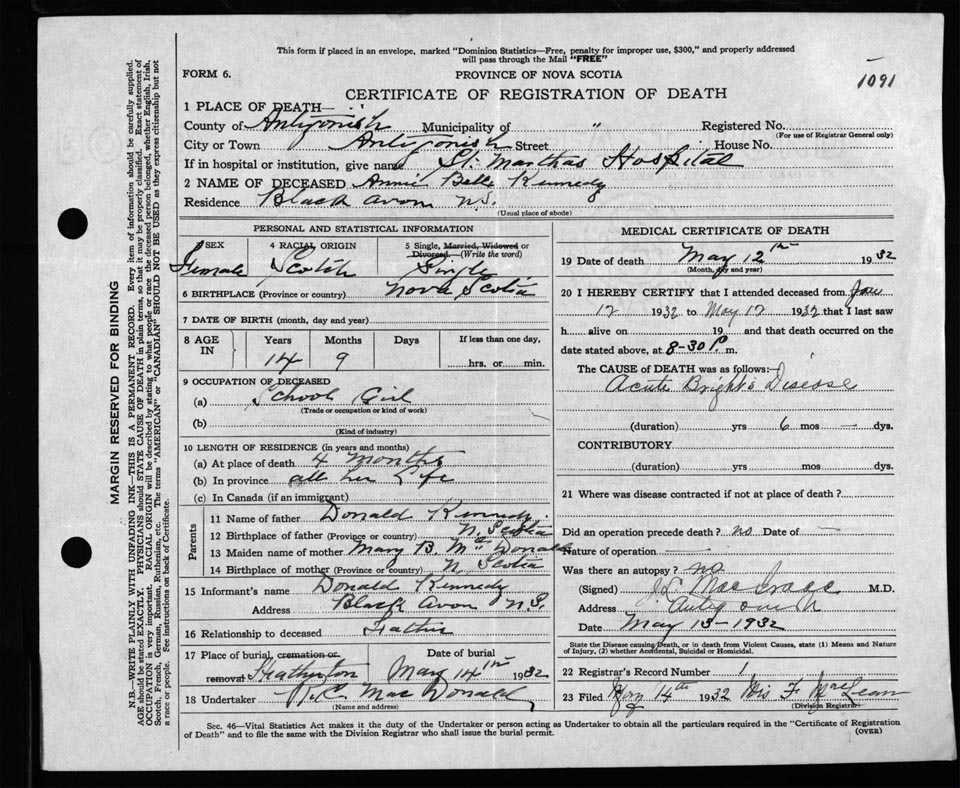 This form if placed in an envelope, marked "Dominion Statistics—Free, penalty for improper use, $300," and properly addressed
will pass through the Mail "FREE"
1091
FORM 6.
PROVINCE OF NOVA SCOTIA
CERTIFICATE OF REGISTRATION OF DEATH
1 PLACE OF DEATH—
County of Antigonish Municipality of " Registered No.
(For use of Registrar General only)
City or Town Antigonish Street House No.
If in hospital or institution, give name St. Marthas Hospital
2 NAME OF DECEASED Annie Belle Kennedy
Residence Black Avon N.S.
(Usual place of abode)
PERSONAL AND STATISTICAL INFORMATION
3 SEX Female
4 RACIAL ORIGIN Scotch
5 Single, Married, Widowed or Divorced.—(Write the word) Single
6 BIRTHPLACE (Province or country) Nova Scotia
7 DATE OF BIRTH (month, day and year)
8 AGE IN Years Months Days If less than one day,
14 9 hrs. or min.
9 OCCUPATION OF DECEASED
(a) School Girl
(Trade or occupation or kind of work)
(b)
(Kind of industry)
10 LENGTH OF RESIDENCE (in years and months)
(a) At place of death 4 Months
(b) In province all her Life
(c) In Canada (if an immigrant)
Parents
11 Name of father Donald Kennedy
12 Birthplace of father (Province or country) N. Scotia
13 Maiden name of mother Mary B. McDonald
14 Birthplace of mother (Province or country) N. Scotia
15 Informant's name Donald Kennedy
Address Black Avon N.S.
16 Relationship to deceased Father
17 Place of burial, cremation or removal Heatherton
Date of burial May 14th 1932
18 Undertaker MacDonald
(Name and address)
MEDICAL CERTIFICATE OF DEATH
19 Date of death May 12th 1932
(Month, day and year)
20 I HEREBY CERTIFY that I attended deceased from Jan
12 1932 to May 12 1932 that I last saw
h alive on 19 and that death occurred on the
date stated above, at 8-30 P m.
The CAUSE of DEATH was as follows:—
Acute Bright's Disease
(duration) yrs 6 mos — dys.
CONTRIBUTORY
(duration) yrs mos dys.
21 Where was disease contracted if not at place of death?
Did an operation precede death? no Date of —
Nature of operation —
Was there an autopsy? no
(Signed) M.D.
Address Antigonish
Date May 13-1932
State the Disease causing Death, or in death from Violent Causes, state (1) Means and Nature
of Injury, (2) whether Accidental, Suicidal or Homicidal.
22 Registrar's Record Number 1
23 Filed May 14th 1932 F. MacLean
(Division Registrar)
Sec. 46—Vital Statistics Act makes it the duty of the Undertaker or person acting as Undertaker to obtain all the particulars required in the "Certificate of Registration
of Death" and to file the same with the Division Registrar who shall issue the burial permit.
(OVER)
MARGIN RESERVED FOR BINDING
N.B.—WRITE PLAINLY WITH UNFADING INK—THIS IS A PERMANENT RECORD. Every item of information should be carefully supplied.
AGE should be stated EXACTLY. PHYSICIANS should STATE CAUSE OF DEATH in plain terms, so that it may be properly classified. Exact statement of
OCCUPATION is very important. RACIAL ORIGIN will be described by stating to what people or race the deceased person belonged, whether English, Irish,
Scotch, French, German, Russian, Ruthenian, etc. The terms "AMERICAN" or "CANADIAN" SHOULD NOT BE USED as they express citizenship but not
a race or people. See instructions on back of Certificate.